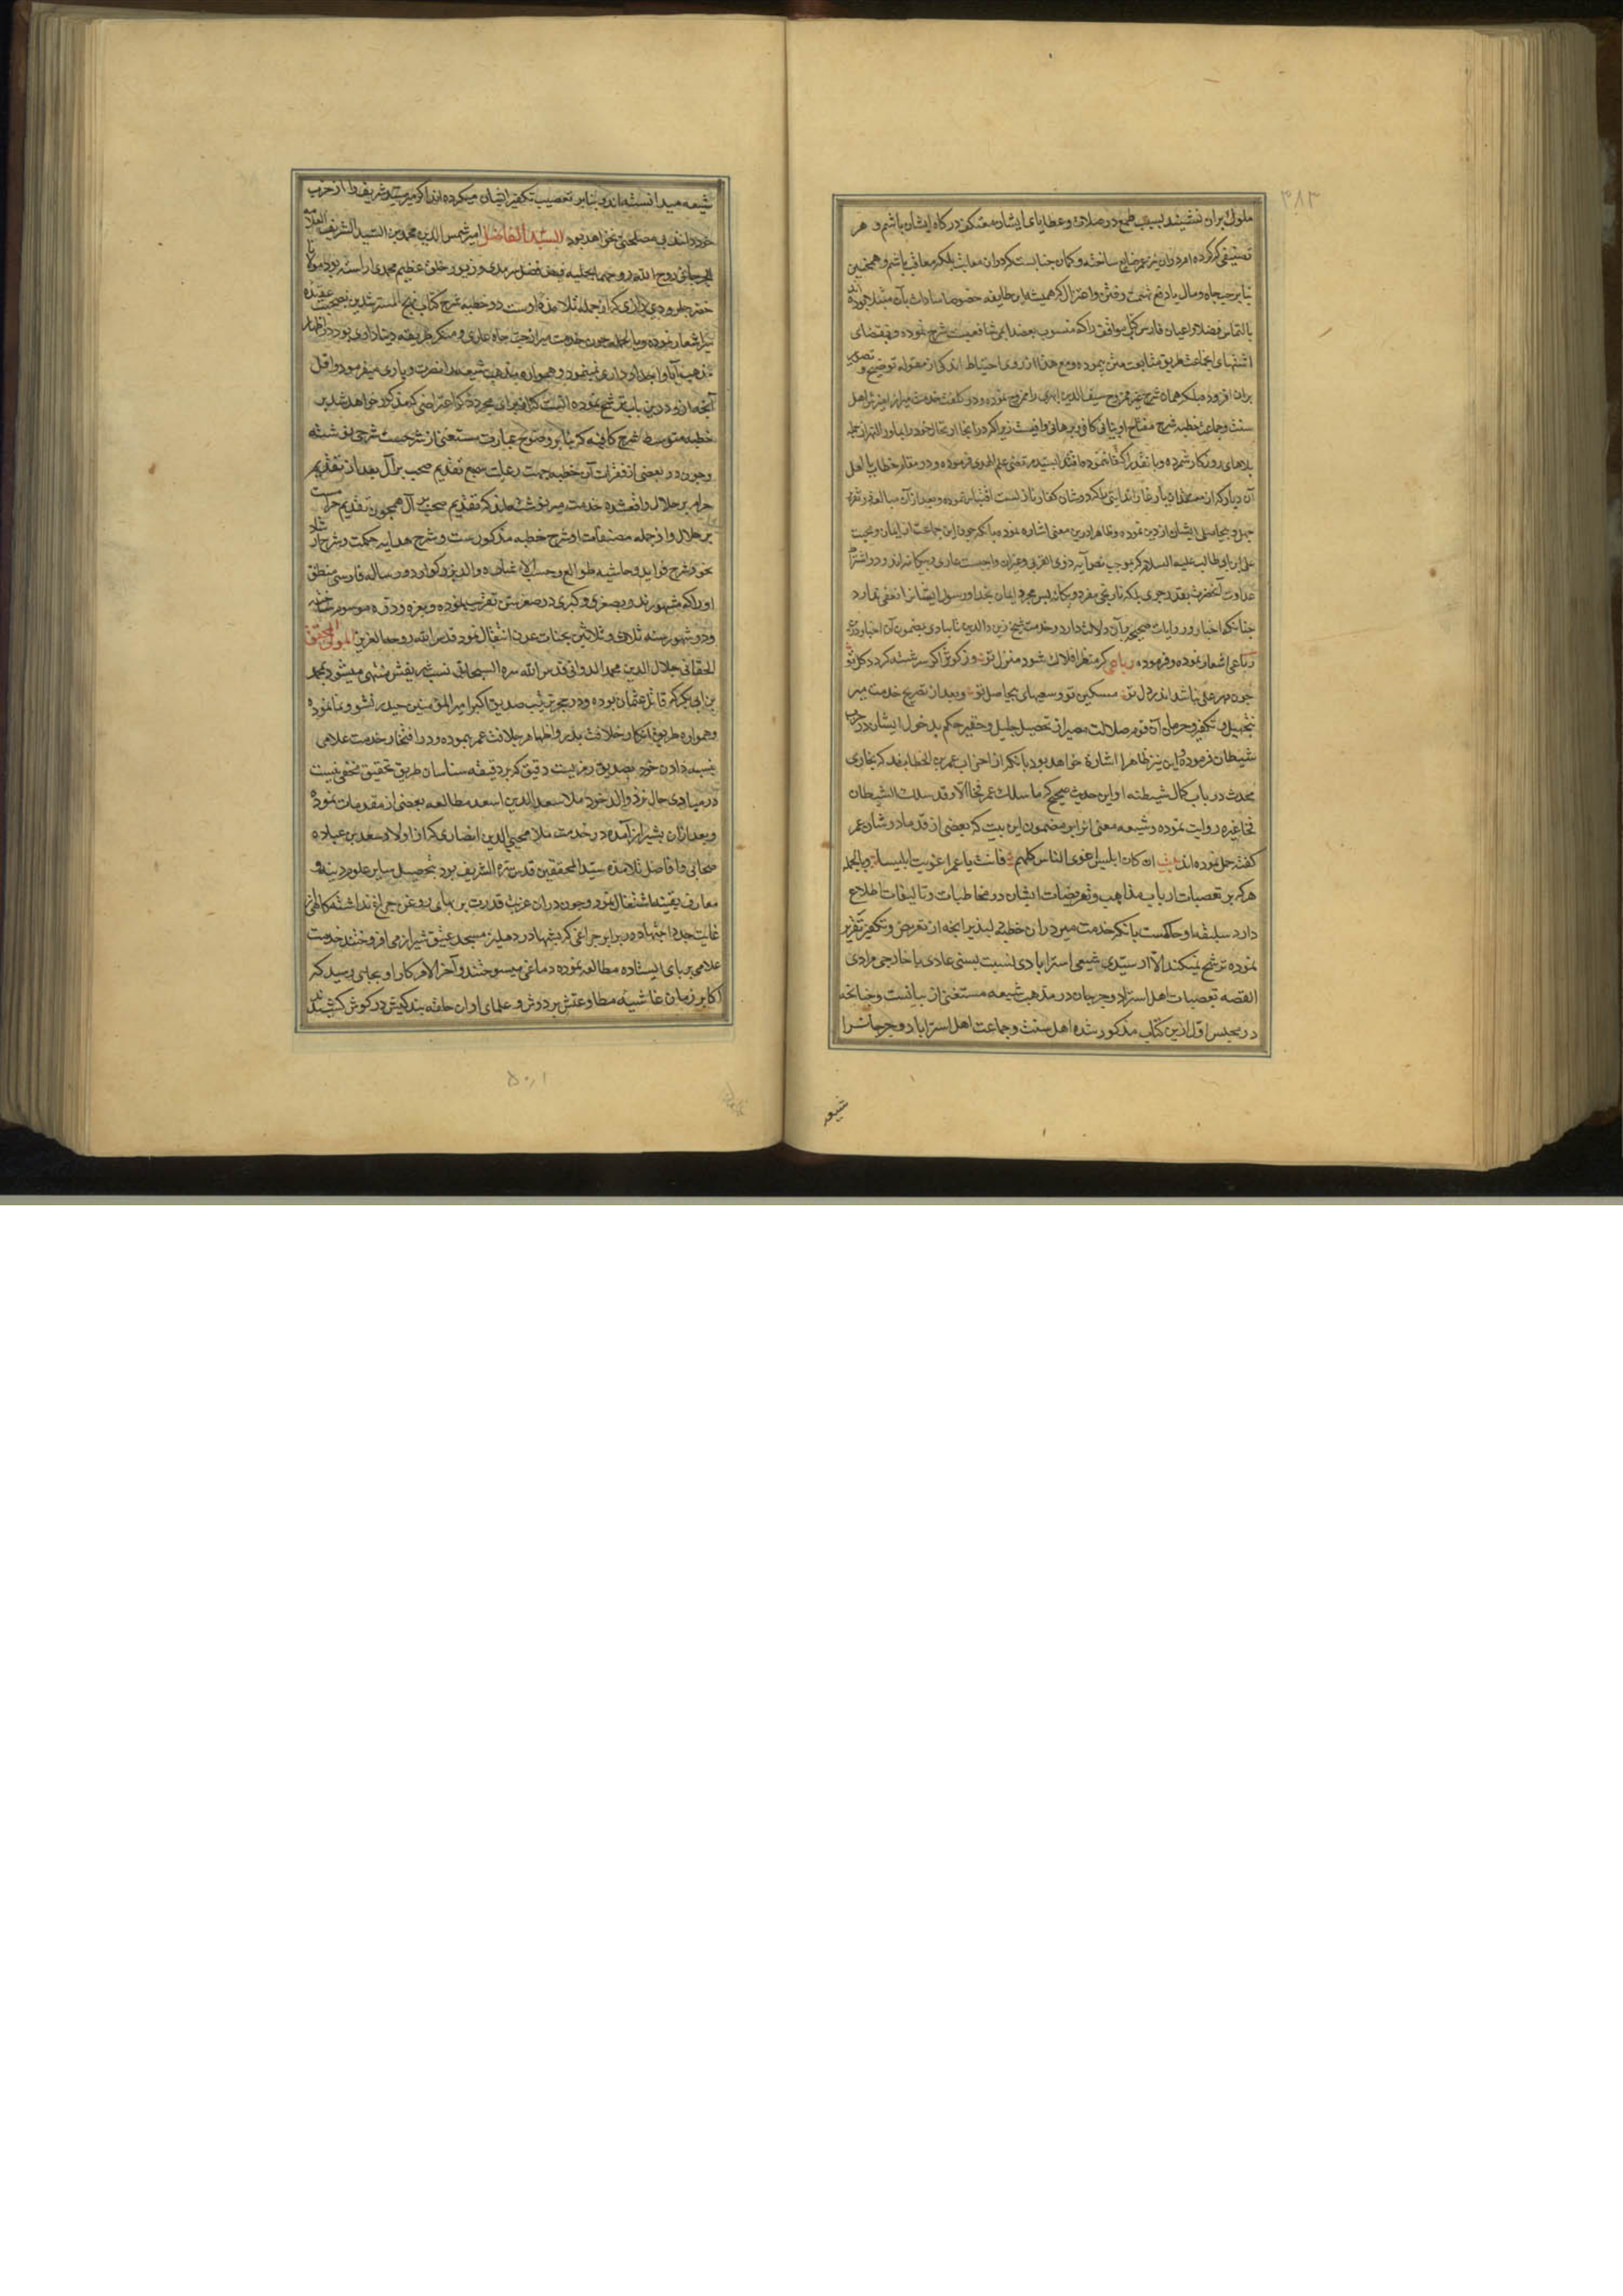 ۳۸۳
ملوك بران ننشیند بسبب طمع در صلات و عطایای ایشان معتکف درکاه ایشان باشم و هر
تصنیفی که کرده ام دران نیز عمر ضایع ساخته و کمان جنانست که دران معاتب بلکه معاقب باشم و همجنین
بنابر حب جاه و مال یا دفع تهمت رفض و اعتزال که همیشه این طایفه خصوصا سادات بآن مبتلا بوده اند
بالتماس فضلا و اعیان فارس کتاب مواقف را که منسوب بعضد ایجی شافعیست شرح نموده و بمقتضای
اشتهای ایجاعت طریق متابعت متن پیموده و مع هذا از روی احتیاط اندکی از مقوله توضیح و تصویر
بران افزوده بلکه همان شرح غیر ممزوج سیف الدین ابهری را ممزوج نموده و در کلفت خدمت میر از امیزش اهل
سنت و جماعت خطبه شرح مفتاح او بثانی کافی و برهانی وافیست زیرا که در انجا ارتحال خود را بماوراء النهر از جمله
بلاهای روزکار شمرده و بانقدر اکتفا ننموده اقتدا بسید مرتضی علم الهدی فرموده و در مقام خطاب با اهل
آن دیار
جهل و بیحاصلی ایشان از دین نموده و ظاهرا درین معنی اشاره نموده بآنکه جون این جماعت از ایمان و محبت
علی بن ابی طالب علیه السلام که بموجب نص آیه ذوی القربی و غیران واجبست عاری و بیکانه اند و در اشتراط
عداوت آنحضرت بقدر جوی بلکه نارنجی مفرد و یکانه بس مجرد ایمان بخدا و رسول ایشانرا نفعی ندارد
جنانکه اخبار و روایات صحیحه بآن دلالت دارد و خدمت شیخ زین الدین تایبادی بمضمون آن اخبار در
رباعی اشعار نموده و فرموده رباعی کر منظر افلاك شود منزل تو وز کوثر اکر سرشته کردد کل تو
جون مهر علی نباشد اندر دل تو مسکین تو و سعیهای بیحاصل تو و بعد از تصریح خدمت میر
بتجهیل و تکفیر و حرمان آن قوم ضلالت مصیر از تحصیل جلیل و حقیر حکم بدخول ایشان در حزب
شیطان فرموده و این نیز ظاهرا اشاره خواهد بود بانکه از احزاب عمر بن الخطابند که بخاری
محدث در باب کمال شیطنه او این حدیث صحیح که ما سلك عمر فجا الا و قد سلك الشیطان
فجا غیره روایت نموده و شیعه معنی انرا بر مضمون این بیت که بعضی از قدما در شان عمر
کفته حمل نموده اند بیت ان کان ابلیس اغوی الناس کلهم فانت یا عمر اغویت ابلیسا و بالجمله
هرکه بر تعصبات ارباب مذاهب و تعریضات ایشان در مخاطبات و تالیفات اطلاع
دارد سلیقه او حاکمست بانکه خدمت میر دران خطبه دلپذیر انچه از تعریض و تکفیر تقریر
نموده ترشح نمیکند الا از سیدی شیعی استرابادی نسبت بسنی عادی یا خارجی مرادی
القصه تعصبات اهل استراباد و جرجان در مذهب شیعه مستغنی از بیانست و جنانچه
در مجلس اول ازین کتاب مذکور شده اهل سنت و جماعت اهل استراباد و جرجانرا
شیعه
شیعه میدانسته اند و بنابر تعصیب تکفیر ایشان میکرده اند اکر میر سید شریف را از حزب
خود دانند بی مصلحتی نخواهد بود السید الفاضل امیر شمس الدین محمد بن السید الشریف العلامه
الجرجانی روح الله روحهما بحلیه فیض فضل سرمدی و زیور خلق عظیم محمدی اراسته بود مولانا
خضر حلرودی رازی که از جمله تلامذه اوست در خطبه شرح کتاب نهج المسترشدین بصحت عقیده
میر اشعار نموده و بالجمله جون خدمت میر از حب جاه عاری و منکر طریقه دنیاداری بود در اظهار
مذهب آبا و اجداد مداری نمینمود و همواره مذهب شیعه را نصرت و یاری میفرمود و اقل
آنچه از و درین باب ترشح نموده
خطبه متوسط شرح کافیه که بنابر وضوح عبارت مستغنی از شرحست شرحی نوشته
و جون در بعضی از فقرات آن خطبه بجهت رعایت سجع تقدیم صحب بر آل بعد از تقدیم
حرام بر حلال واقع شده خدمت میر نوشته اند که تقدیم صحب بر آل همجون تقدیم حرامست
بر حلال و از جمله مصنفات او شرح خطبه مذکورست و شرح هدایه حکمت و شرح ارشاد
نحو و شرح فواید و حاشیه طوالع و حسب الاشاره والد بزرکوار دو رساله فارسی منطق
او را که مشهورند و بصغری و کبری در صغر سن تعریب نموده و بغره و دره موسوم ساخته
و در شهور سنه ثلاث و ثلاثین بجنات عدن انتقال نمود قدس الله روحه العزیز المولی المحقق
الحقانی جلال الدین محمد الدوانی قدس الله سره السبحانی نسب شریفش منتهی میشود بمحمد
بن ابی بکر که قاتل عثمان بوده و در حجر تربیت صدیق اکبر امیر المؤمنین حیدر نشو و نما نموده
و همواره طریق انکار خلافت پدر و اظهار جلافت عمر پیموده و در افتخار خدمت علامی
بنسبه دادن خود بصدیق رمزیست دقیق که بر دقیقه شناسان طریق تحقیق مخفی نیست
در مبادی حال نزد والد خود ملا سعد الدین اسعد مطالعه بعضی از مقدمات نموده
و بعد ازان بشیراز آمده در خدمت ملا محیی الدین انصاری که از اولاد سعد بن عباده
صحابی و افاضل تلامذه سید المحققین قدس سره الشریف بود بتحصیل سایر علوم دینیه و
معارف یقینیه اشتغال نمود و جون دران غربت قدرت بر بهای روغن جراغ نداشته کاهی از
غایت جد و اجتهاد در برابر جراغی که شبها در دهلیز مسجد عتیق شیراز می افروختند خدمت
علامی بر پای ایستاده مطالعه نموده دماغی میسوختند و آخر الامر کار او بجایی رسید که
اکابر زمان غاشیه مطاوعتش بر دوش و علمای اوان حلقه بندکیش در کوش کشیدند
۵۰۱